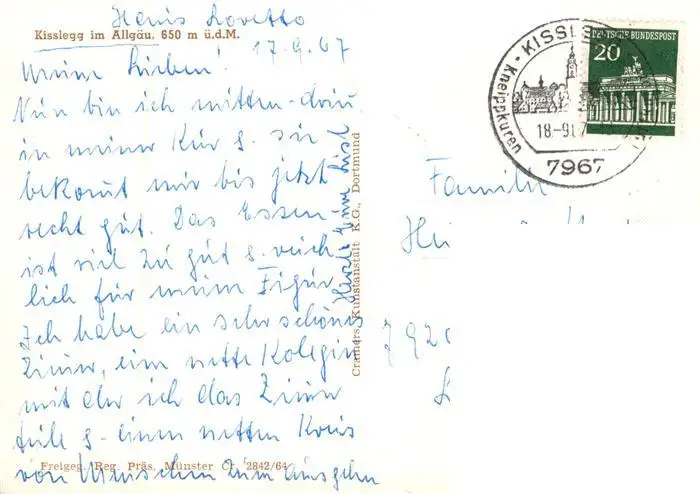 Haus Loretto
Kisslegg im Allgäu. 650 m ü.d.M.
17.9.67
Meine Lieben!
Nun bin ich mitten-drin
in meiner Kur u. sie
bekomt mir bis jetzt
recht gut. Das Essen
ist viel zu gut u. reich-
lich für meine Figur
Ich habe ein sehr schönes
Zimmer, eine nette Kolegin
mit der ich das Zimmer
teile u. einen netten Kreis
von Menschen zum ausgehn
Freigeg. Reg. Präs. Münster Cr. 2842/64
Herzl. Eure
Cramers Kunstanstalt K.G., Dortmund
DEUTSCHE BUNDESPOST
20
KISSLE
Kneippkuren
18-9.67
7967
Familie
Hei
792